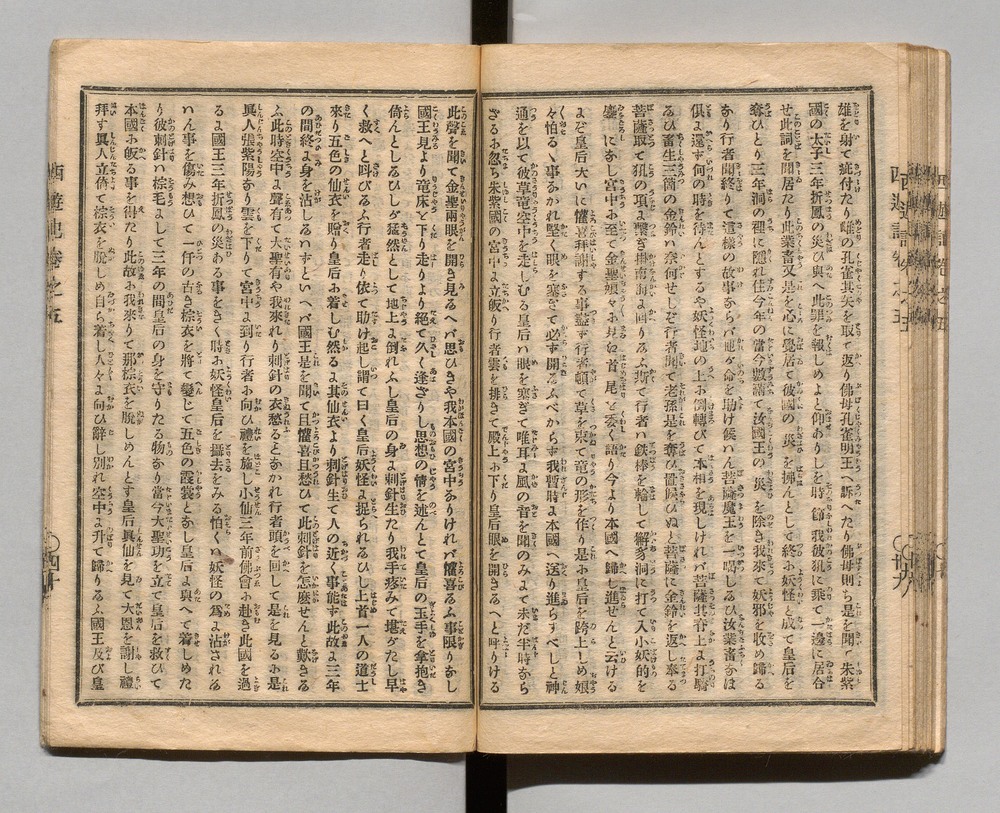 雄を射て疵付たり雌の孔雀其矢を取て返り佛母孔雀明王へ訴へたり佛母則ち是を聞て朱紫
國の太子三年折鳳の災ひ與へ此罪を報しめよと仰ありしを時節我彼犼に乘て一邊に居合
せ此詞を聞居たり此業畜又是を心に覺居て彼國の災を拂んとして終に妖怪と成て皇后を
奪ひとり三年洞の裡に隱れ住今年の當今數滿て汝國王の災を除き我來て妖邪を收め歸る
あり行者聞終りて這樣の故事ならバ他が命を助け候はん菩薩魔王を一喝し給ひ汝業畜なほ
俱よ還す何の時を待んとするや妖怪地の上に倒轉びて本相を現しけれバ菩薩其脊上に打騎
給ひ畜生三箇の金鈴ハ奈何せしぞ行者聞て老孫是を奪ひ置候ひぬと菩薩に金鈴を返し奉る
菩薩取て犼の項に繋ぎ掛南海に回り給ふ斯て行者ハ鉄棒を輪して獬豸洞に打て入小妖的を
鏖にし宮中に至て金聖娘々に見え首尾を委く語り今より本國へ歸し進ぜんと云ける
よぞ皇后大いに懽喜拜謝する事竭ず行者頓て草を束て竜の形を作り是に皇后を跨上しめ娘
々怕るゝ事なかれ堅く眼を塞ぎて必ず開給ふべからず我暫時に本國へ送り進らすべしと神
通を以て彼草竜空中を走しむる皇后ハ眼を塞ぎて唯耳に風の音を聞のみにて未だ半時なら
ざるに忽ち朱紫國の宮中に立皈り行者雲を排きて殿上に下り皇后眼を開き給へと呼りける
此聲を聞て金聖兩眼を開き見るへバ思ひきや我本國の宮中なりけれバ懽喜給ふ事限りなし
國王見より竜床を下り走りより絕て久く逢ざりし思想の情を述んとて皇后の玉手を拿抱き
倚んとし給ひしが猛然として地上に倒れふし皇后の身に刺針生たり我手疼みて堪がたし早
く救へと呌び給ふ行者走り依て助け起し謂て曰く皇后妖怪に捉られ給ひし上首一人の道士
來り五色の仙衣を贈り皇后に着しむ然るに其仙衣より刺針生て人の近く事能ず此故に三年
の間終に身を沾し給はずといへバ國王是を聞て且懽喜且愁ひて此刺針を怎麼せんと歎き給
ふ此時空中に聲有て大聖有や我來れり刺針の衣愁るとなかれ行者頭を回して是を見るに是
眞人張紫陽なり雲を下りて宮中に到り行者に向ひ禮を施し小仙三年前佛會に赴き此國を過
るよ國王三年折鳳の災ある事をきく時に妖怪皇后を攝去をみる怕くハ妖怪の爲に沾され給
はん事を傷み想ひて一件の古き棕衣を將て變じて五色の霞裳となし皇后に與へて着しめた
り彼刺針ハ棕毛にして三年の間皇后の身を守りたる物なり當今大聖功を立て皇后を救ひて
本國に皈る事を得たり此故に我來りて那棕衣を脫しめんとす皇后眞仙を見て大恩を謝し禮
拜す眞人立倚て棕衣を脫しめ自ら着し人々に向ひ辭し別れ空中に升て歸り給ふ國王及び皇
西遊記卷之五
四十